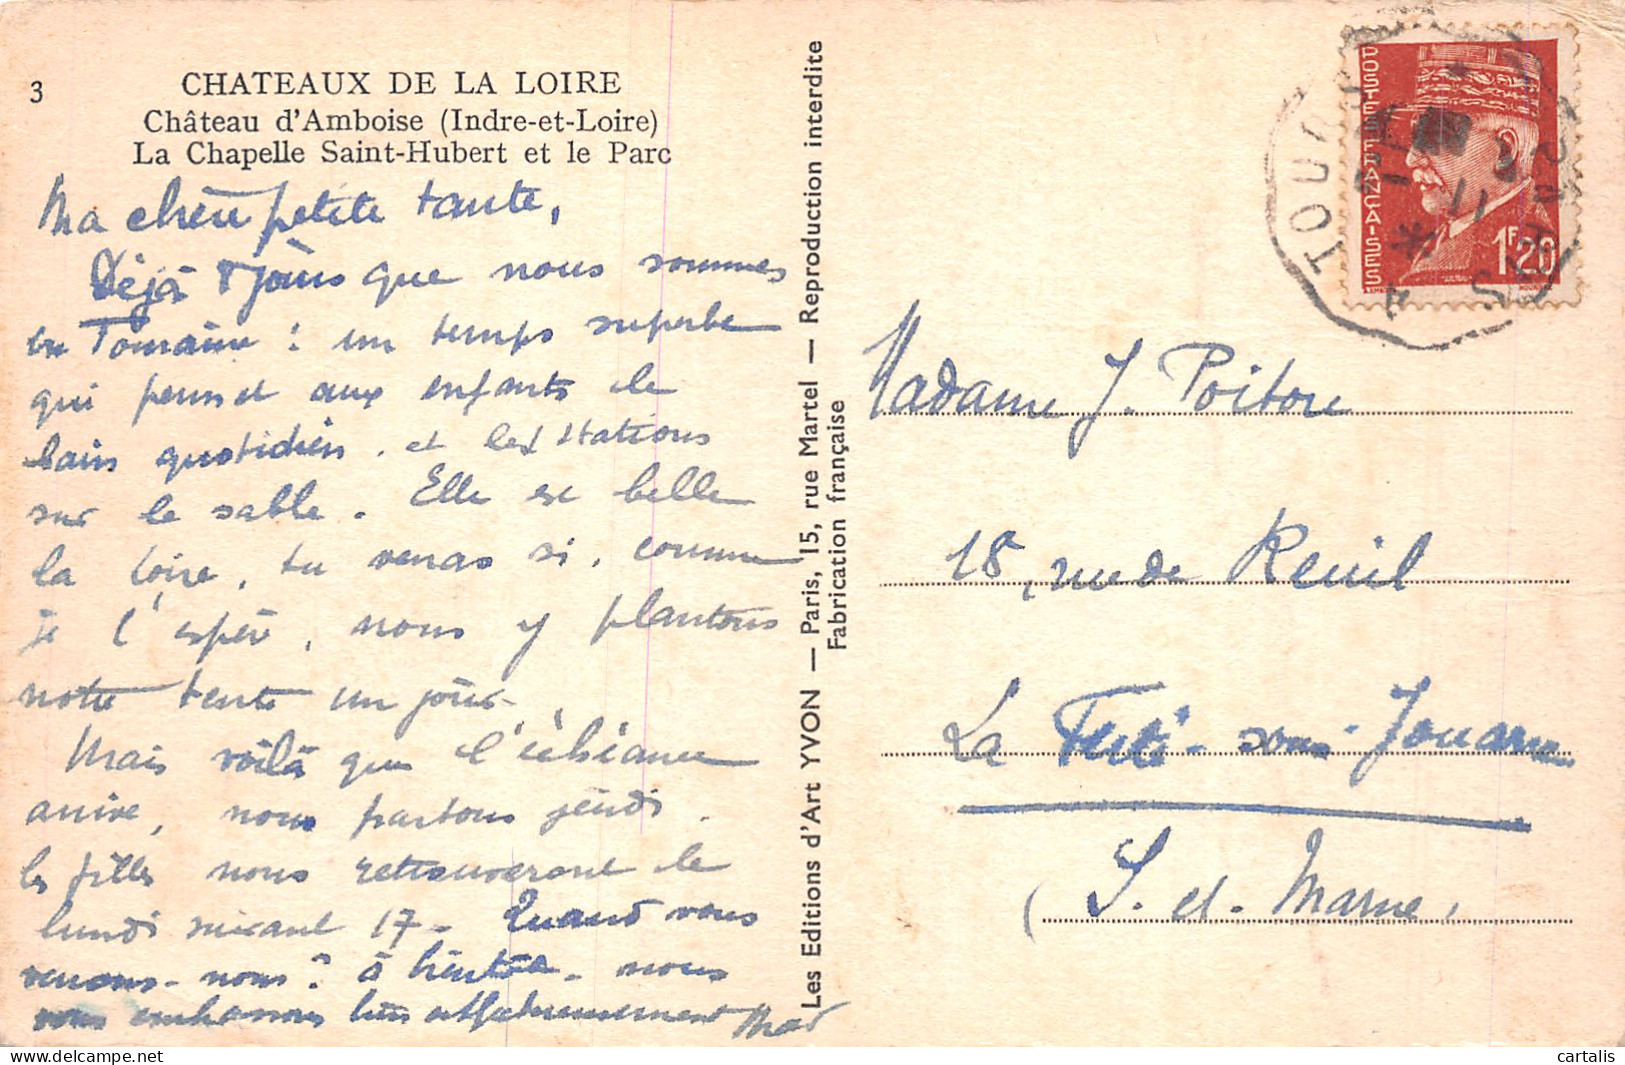 3
CHATEAUX DE LA LOIRE
Château d'Amboise (Indre-et-Loire)
La Chapelle Saint-Hubert et le Parc
Ma chère petite tante,
Déjà 8 jours que nous sommes
en Touraine : un temps superbe
qui permet aux enfants le
bain quotidien, et les stations
sur le sable. Elle est belle
la Loire, tu verras si, comme
je l'espère, nous y plantons
notre tente un jour.
Mais voilà que l'échéance
arrive, nous partons jeudi.
les filles nous retrouveront le
lundi suivant 17 - Quand vous
verrons-nous ? à bientôt - nous
vous embrassons bien affectueusement
Les Editions d'Art YVON — Paris, 15, rue Martel — Reproduction interdite
Fabrication française
POSTES FRANÇAISES
1F20
TOURS
Madame J. Poitore
18, rue de Reuil
La Ferté-sous-Jouarre
(S. et. Marne,
cartalis